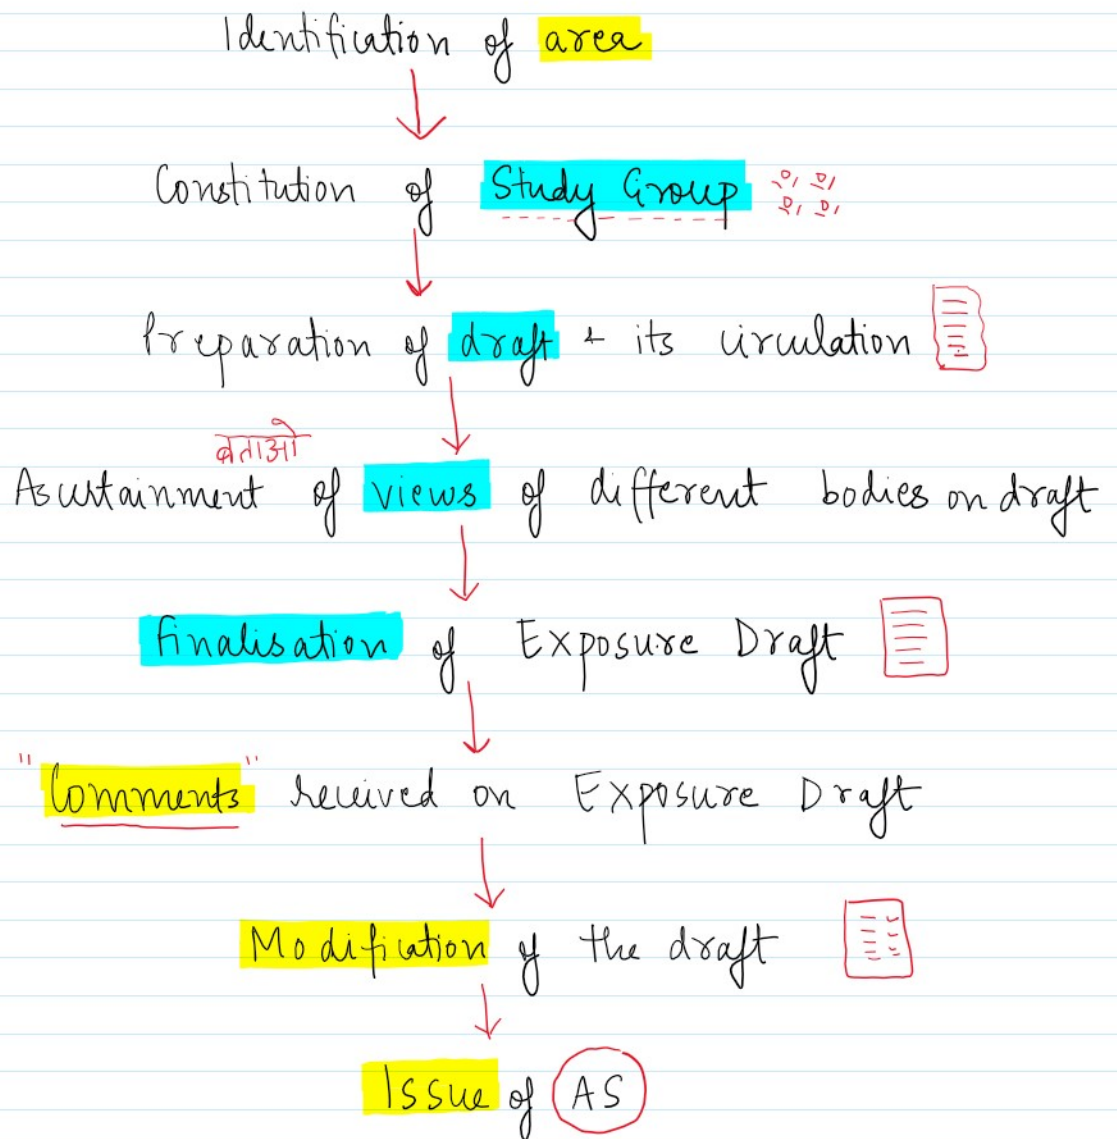 Identification of area
Constitution of Study Group
Preparation of draft & its circulation
बताओ
Ascertainment of views of different bodies on draft
Finalisation of Exposure Draft
"Comments" received on Exposure Draft
Modification of the draft
Issue of AS